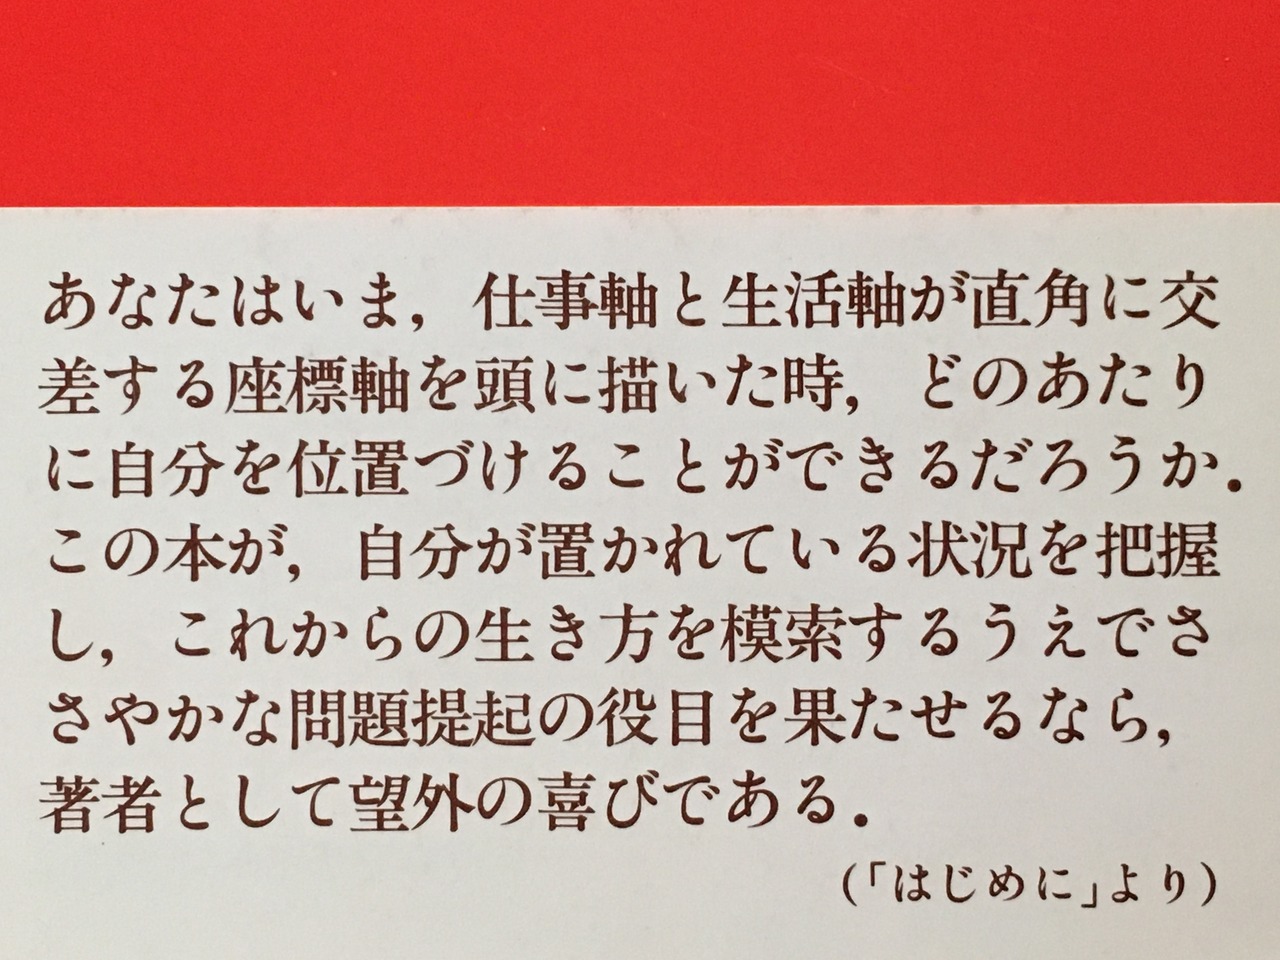 あなたはいま，仕事軸と生活軸が直角に交
差する座標軸を頭に描いた時，どのあたり
に自分を位置づけることができるだろうか．
この本が，自分が置かれている状況を把握
し，これからの生き方を模索するうえでさ
さやかな問題提起の役目を果たせるなら，
著者として望外の喜びである．
（「はじめに」より）